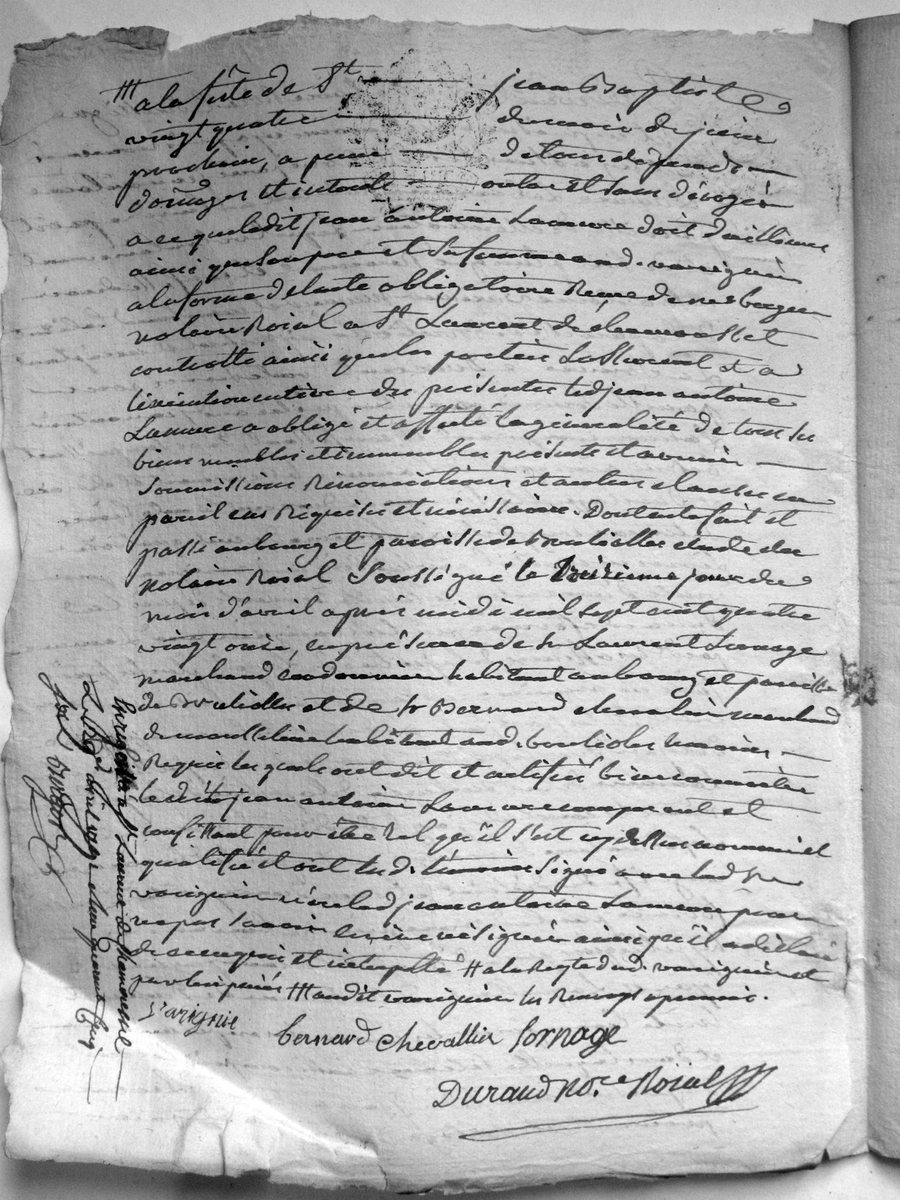 a la fête de St jean Baptiste
vingt quatre du mois de juin
prochain, a peine de tous depends
domages et interets outre et sans déroger
a ce que ledit jean antoine Lamure doit d'ailleurs
ainsi que son pere et sa femme aud. varignier
a la forme de l'acte obligatoire Reçue de
notaire Roial a St Laurent de chamousset
controllé ainsi que les parties L'assurent et a
l'éxécution entière des présentes led jean antoine
Lamure a obligé et affecté la généralité de tous ses
biens meubles et immeubles présents et avenir
Soumissions Rénonciations et autres clauses en
pareil cas Réquises et nécéssaires. Dont acte fait et
passé au bourg et paroisse de étude du
notaire Roial Soussigné le treizieme jour du
mois d'avril après midi mil sept cent quatre
vingt onze, en présence de sr Laurent fornage
marchand cordonnier habitant au bourg et paroisse
de et de sr Bernard chevalier marchand
de mousseline habitant aud. temoins
Requis lesquels ont dit et attesté bien connoitre
ledit jean antoine Lamure comparant et
consistant pour être tel qu'il s'est cy dessus nommé et
qualifié et ont lesd. témoins signé avec led sr
varignier non led jean antoine Lamure pour
ne pas savoir écrire ni signer ainsi qu'il a déclaré
de ce enquis et interpellé a la Reqte dud. varignier et
par lui payés audit varignier les
Varignié
bernard chevallier fornage
Durand No.re Roial
Enrégistré a St Laurent de Chamousset
Le avril 1791